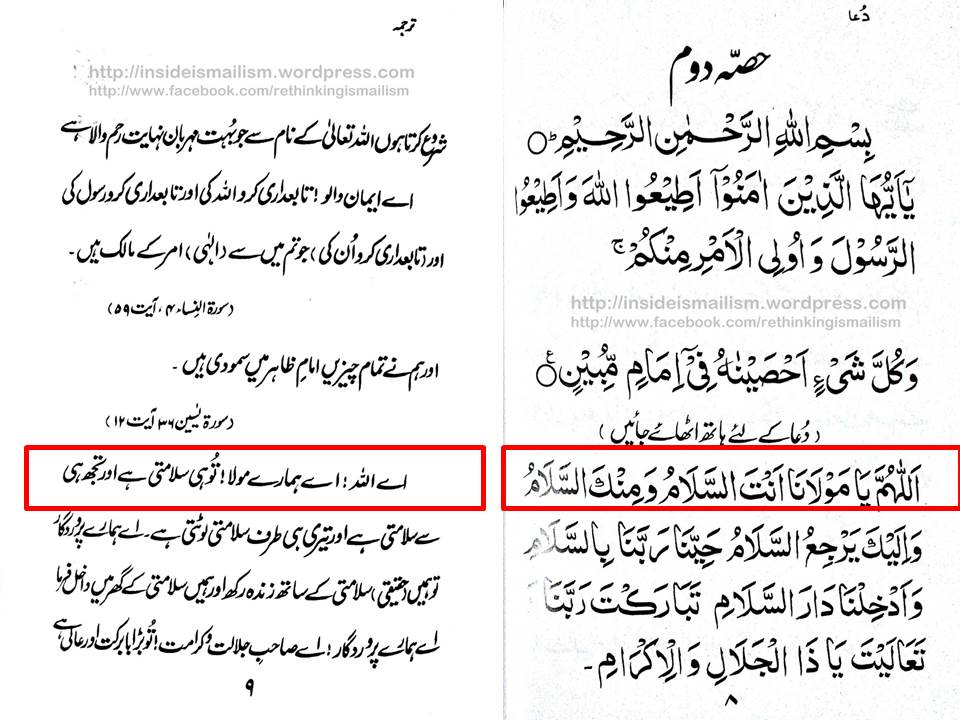 دُعا
حصّہ دوم
بِسْمِ اللهِ الرَّحْمٰنِ الرَّحِيْمِ○
يٰٓاَيُّهَا الَّذِيْنَ اٰمَنُوْٓا اَطِيْعُوا اللهَ وَاَطِيْعُوا
الرَّسُوْلَ وَ اُولِى الْاَمْرِ مِنْكُمْ ۚ
http://insideismailism.wordpress.com
http://www.facebook.com/rethinkingismailism
وَكُلَّ شَىْءٍ اَحْصَيْنٰهُ فِىْٓ اِمَامٍ مُّبِيْنٍ○
(دُعا کے لئے ہاتھ اٹھائے جائیں)
اَللّٰهُمَّ يَا مَوْلَانَا اَنْتَ السَّلَامُ وَمِنْكَ السَّلَامُ
وَاِلَيْكَ يَرْجِعُ السَّلَامُ حَيِّنَا رَبَّنَا بِالسَّلَامِ
وَاَدْخِلْنَا دَارَ السَّلَامِ تَبَارَكْتَ رَبَّنَا
تَعَالَيْتَ يَا ذَا الْجَلَالِ وَالْاِكْرَامِ۔
۸
ترجمہ
http://insideismailism.wordpress.com
http://www.facebook.com/rethinkingismailism
شروع کرتا ہوں اللہ تعالیٰ کے نام سے جو بہت مہربان نہایت رحم والا ہے
اے ایمان والو! تابعداری کرو اللہ کی اور تابعداری کرو رسول کی
اور (تابعداری کرو اُن کی) جو تم میں سے (الٰہی) امر کے مالک ہیں۔
(سورۃ النساء ۴، آیت ۵۹)
اور ہم نے تمام چیزیں امامِ ظاہر میں سمو دی ہیں ۔
(سورۃ یٰسین ۳۶ آیت ۱۲)
اے اللہ! اے ہمارے مولا! تُو ہی سلامتی ہے اور تجھ ہی
سے سلامتی ہے اور تیری ہی طرف سلامتی لوٹتی ہے۔ اے ہمارے پروردگار
تو ہمیں (حقیقی) سلامتی کے ساتھ زندہ رکھ اور ہمیں سلامتی کے گھر میں داخل فرما
اے ہمارے پروردگار! اے صاحبِ جلالت و کرامت! تُو بڑا بابرکت اور عالی ہے
۹